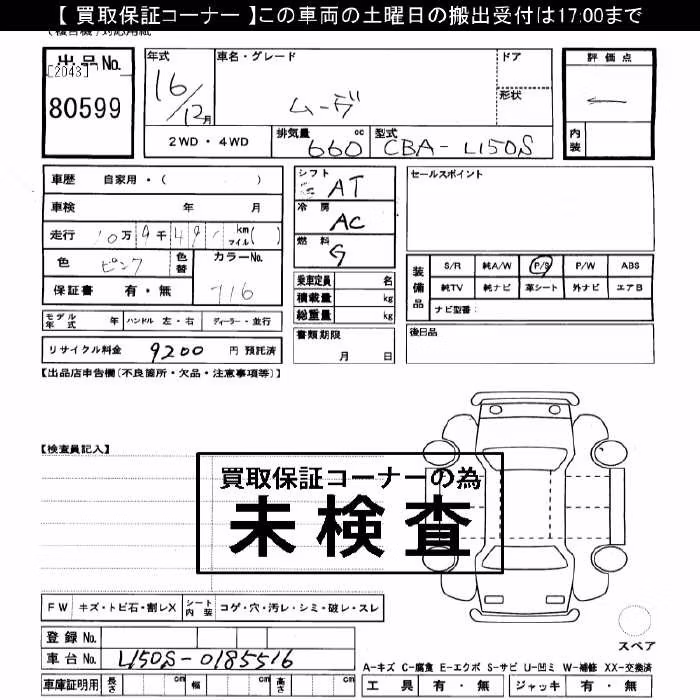 【 買取保証コーナー 】この車両の土曜日の搬出受付は17:00まで
出品No.
[2043]
80599
年式
16/12月
車名・グレード
ムーヴ
ドア
形状
評価点
内装
2WD・4WD
排気量 660 cc
型式 CBA-L150S
車歴 自家用・( )
車検 年 月
走行 10万9千491 km マイル( )
色 ピンク
色替
カラーNo.
716
保証書 有・無
モデル年式 年
ハンドル 左・右
ディーラー・並行
リサイクル料金 9200 円 預託済
シフト AT
冷房 AC
燃料 G
乗車定員 名
積載量 kg
総重量 kg
書類期限
月 日
セールスポイント
装備品
S/R 純A/W P/S P/W ABS
純TV 純ナビ 革シート 外ナビ エアB
ナビ型番:
後日品
【出品店申告欄(不良箇所・欠品・注意事項等)】
【検査員記入】
買取保証コーナーの為
未検査
FW キズ・トビ石・割レX
シート内装 コゲ・穴・汚レ・シミ・破レ・スレ
登録No.
車台No. L150S-0185516
車庫証明用 長さ cm 幅 cm 高さ cm
スペア
A-キズ C-腐食 E-エクボ S-サビ U-凹ミ W-補修 XX-交換済
工具 有・無 ジャッキ 有・無